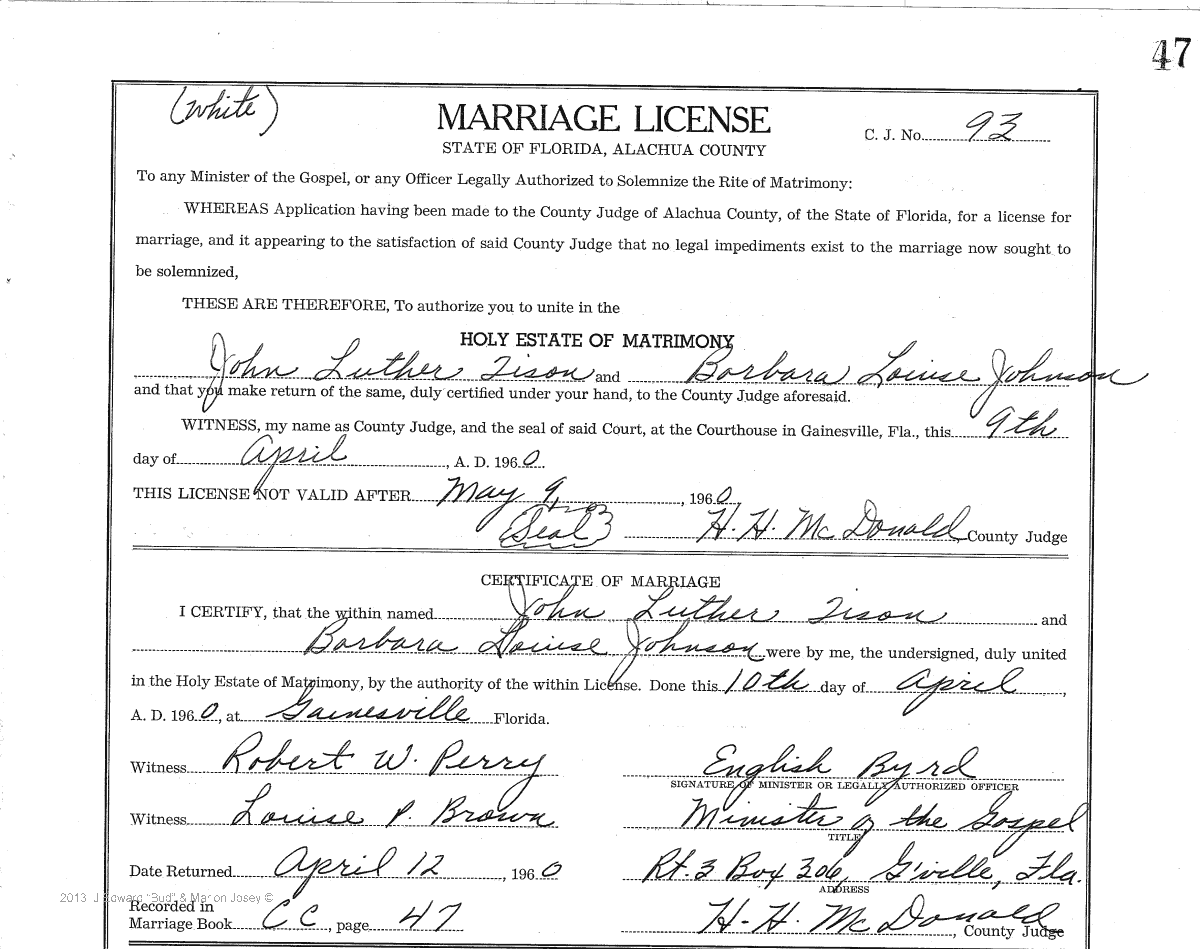 47
(White)
MARRIAGE LICENSE
C. J. No. 93
STATE OF FLORIDA, ALACHUA COUNTY
To any Minister of the Gospel, or any Officer Legally Authorized to Solemnize the Rite of Matrimony:
WHEREAS Application having been made to the County Judge of Alachua County, of the State of Florida, for a license for
marriage, and it appearing to the satisfaction of said County Judge that no legal impediments exist to the marriage now sought to
be solemnized,
THESE ARE THEREFORE, To authorize you to unite in the
HOLY ESTATE OF MATRIMONY
John Luther Tison and Barbara Louise Johnson
and that you make return of the same, duly certified under your hand, to the County Judge aforesaid.
WITNESS, my name as County Judge, and the seal of said Court, at the Courthouse in Gainesville, Fla., this 9th
day of April, A. D. 1960.
THIS LICENSE NOT VALID AFTER May 9, 1960
Seal H. H. McDonald, County Judge
CERTIFICATE OF MARRIAGE
I CERTIFY, that the within named John Luther Tison and
Barbara Louise Johnson were by me, the undersigned, duly united
in the Holy Estate of Matrimony, by the authority of the within License. Done this 10th day of April,
A. D. 1960, at Gainesville Florida.
Witness Robert W. Perry English Byrd
SIGNATURE OF MINISTER OR LEGALLY AUTHORIZED OFFICER
Witness Louise P. Brown Minister of the Gospel
TITLE
Date Returned April 12, 1960 Rt. 3 Box 306, G'ville, Fla.
ADDRESS
2013 J Edward "Bud" & Marion Josey ©
Recorded in
Marriage Book CC, page 47 H. H. McDonald, County Judge